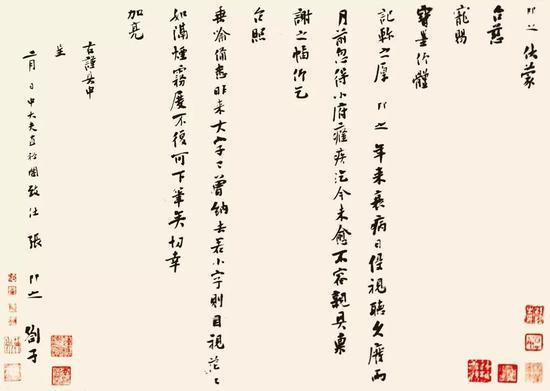 即之伏蒙
台慈
寵賜
寶墨仰體
記軫之厚即之年來衰病日侵視聽久廢兩
月前忽得小府癃疾迄今未愈不容親具稟
謝之幅仰乞
台照
垂喻備悉昨來大字已曾納去若小字則目視茫〻
如滿煙霧度不復可下筆矣切幸
加亮
右謹具申
呈
二月日中大夫直秘閣致仕張即之劄子